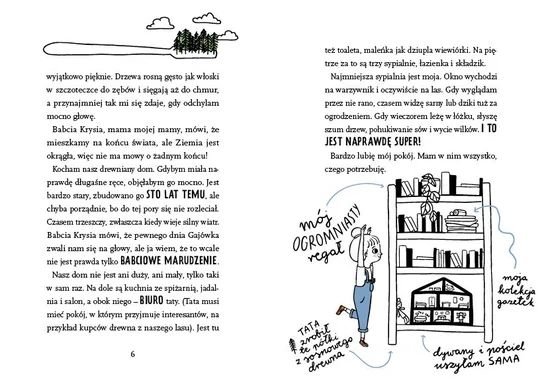 wyjątkowo pięknie. Drzewa rosną gęsto jak włoski
w szczoteczce do zębów i sięgają aż do chmur,
a przynajmniej tak mi się zdaje, gdy odchylam
mocno głowę.
Babcia Krysia, mama mojej mamy, mówi, że
mieszkamy na końcu świata, ale Ziemia jest
okrągła, więc nie ma mowy o żadnym końcu!
Kocham nasz drewniany dom. Gdybym miała na-
prawdę długaśne ręce, objęłabym go mocno. Jest
bardzo stary, zbudowano go STO LAT TEMU, ale
chyba porządnie, bo do tej pory się nie rozleciał.
Czasem trzeszczy, zwłaszcza kiedy wieje silny wiatr.
Babcia Krysia mówi, że pewnego dnia Gajówka
zwali nam się na głowy, ale ja wiem, że to wcale
nie jest prawda tylko BABCIOWE MARUDZENIE.
Nasz dom nie jest ani duży, ani mały, tylko taki
w sam raz. Na dole są kuchnia ze spiżarnią, jadal-
nia i salon, a obok niego – BIURO taty. (Tata musi
mieć pokój, w którym przyjmuje interesantów, na
przykład kupców drewna z naszego lasu). Jest tu
6
też toaleta, maleńka jak dziupla wiewiórki. Na pię-
trze za to są trzy sypialnie, łazienka i składzik.
Najmniejsza sypialnia jest moja. Okno wychodzi
na warzywnik i oczywiście na las. Gdy wyglądam
przez nie rano, czasem widzę sarny lub dziki tuż za
ogrodzeniem. Gdy wieczorem leżę w łóżku, słyszę
szum drzew, pohukiwanie sów i wycie wilków. I TO
JEST NAPRAWDĘ SUPER!
Bardzo lubię mój pokój. Mam w nim wszystko,
czego potrzebuję.
mój
OGROMNIASTY
regał
moja
kolekcja
gazetek
TATA
zrobił
te półki
z sosnowego
drewna
dywany i pościel
uszyłam SAMA